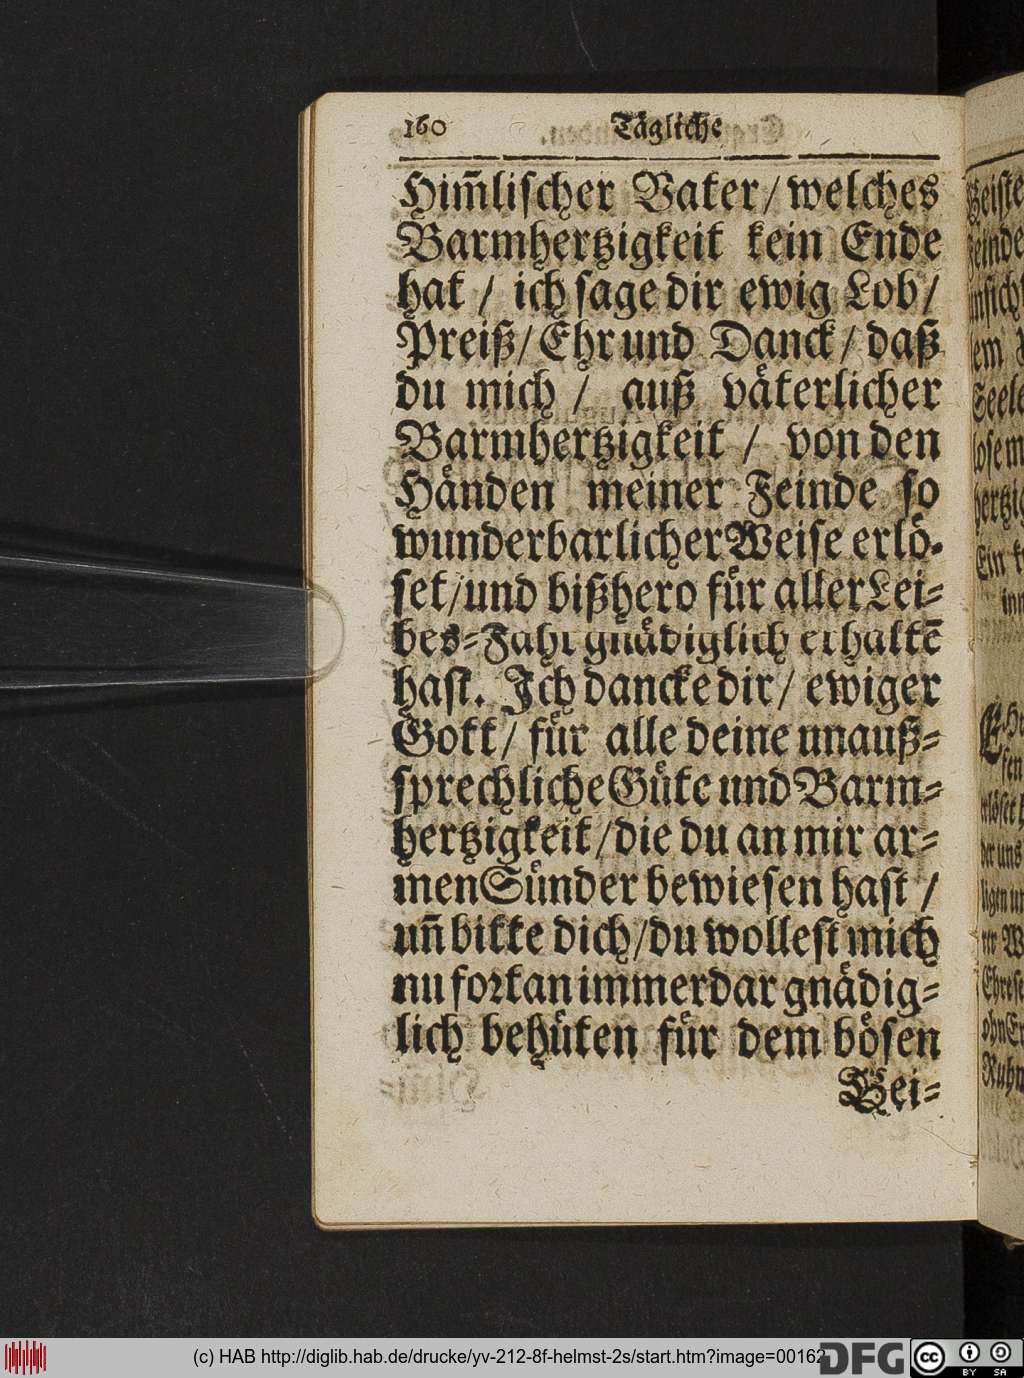 160 Tägliche
Him̃lischer Vater/ welches
Barmhertzigkeit kein Ende
hat / ich sage dir ewig Lob/
Preiß/ Ehr und Danck/ daß
du mich / auß väterlicher
Barmhertzigkeit / von den
Händen meiner Feinde so
wunderbarlicher Weise erlö-
set/und bißhero für aller Lei-
bes-Fahr gnädiglich erhaltē
hast. Ich dancke dir/ ewiger
Gott/ für alle deine unauß-
sprechliche Güte und Barm-
hertzigkeit/die du an mir ar-
men Sünder bewiesen hast /
uñ bitte dich/du wollest mich
nu fortan immerdar gnädig-
lich behüten für dem bösen
Gei-
Geiste
Seele
Ein
(c) HAB http://diglib.hab.de/drucke/yv-212-8f-helmst-2s/start.htm?image=00162
DFG
cc BY SA